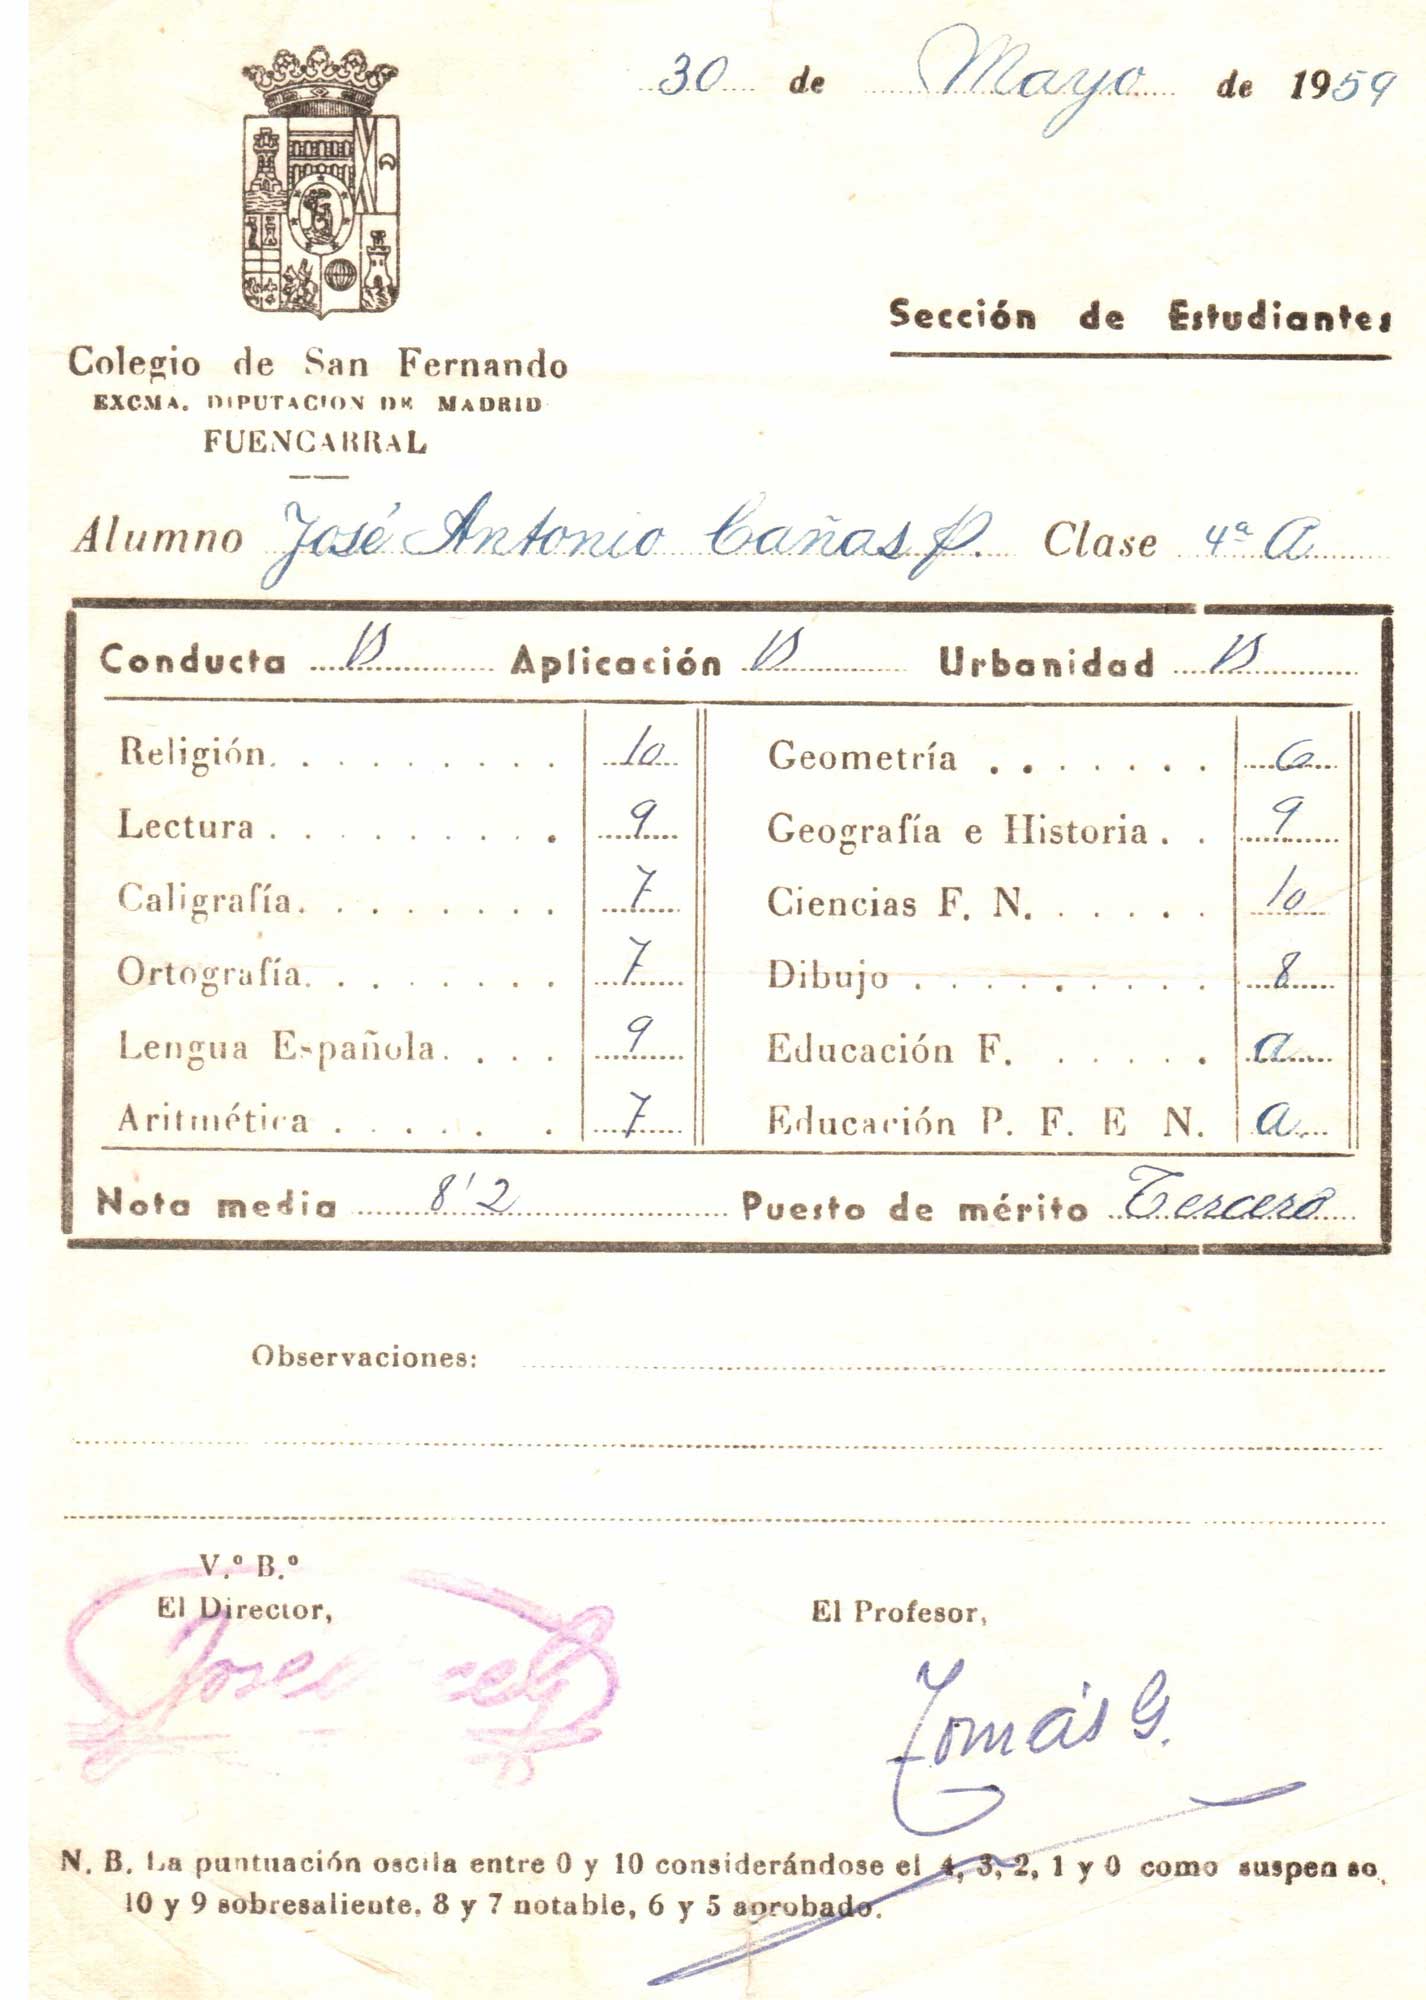 30 de Mayo de 1959
Sección de Estudiantes
Colegio de San Fernando
EXCMA. DIPUTACION DE MADRID
FUENCARRAL
Alumno José Antonio Cañas P. Clase 4ª A
Conducta B Aplicación B Urbanidad B
Religión 10
Lectura 9
Caligrafía 7
Ortografía 7
Lengua Española 9
Aritmética 7
Geometría 6
Geografía e Historia 9
Ciencias F. N. 10
Dibujo 8
Educación F. a
Educación P. F. E N. a
Nota media 8'2 Puesto de mérito Tercero
Observaciones:
V.º B.º
El Director,
El Profesor,
Tomás G.
N. B. La puntuación oscila entre 0 y 10 considerándose el 4, 3, 2, 1 y 0 como suspenso,
10 y 9 sobresaliente, 8 y 7 notable, 6 y 5 aprobado.